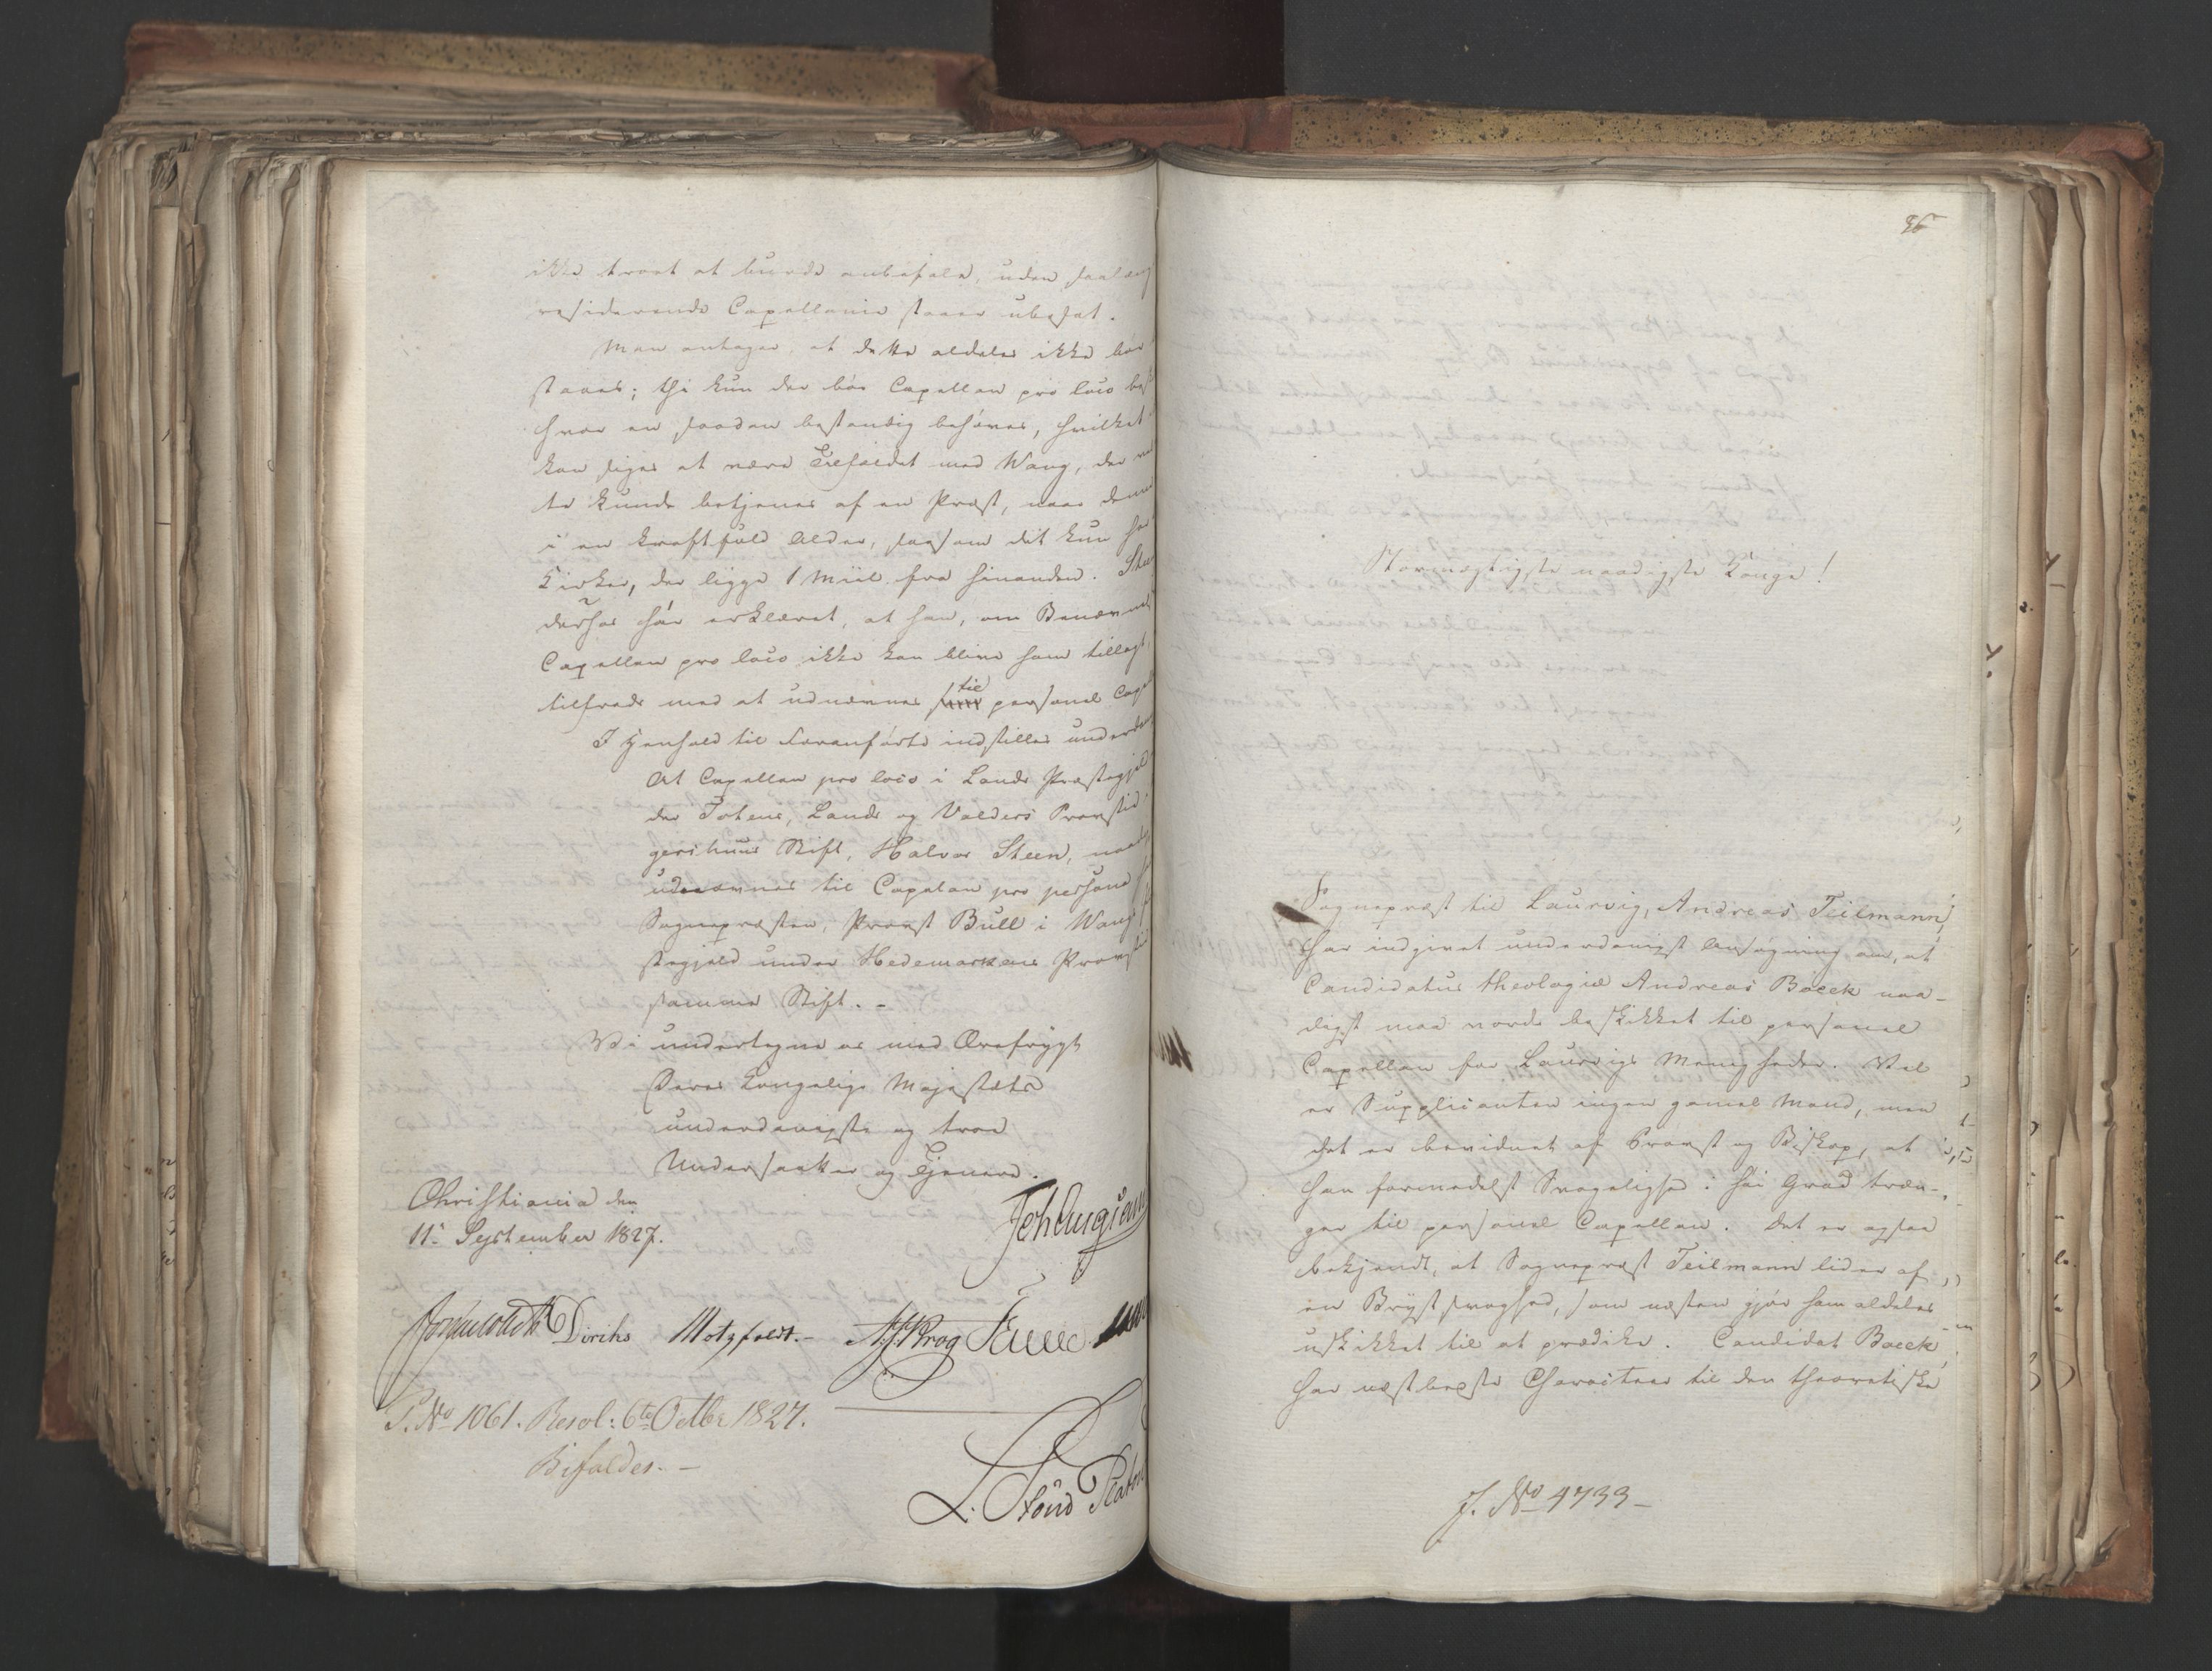 ikke troet at burde anbefale, uden saalæng
residerende Capellanie staaer ubesat.
Man antager, at dette aldeles ikke bør
staaes; thi kun der bør Capellan pro loco
hvor en saadan bestandig behøves, hvilket
kan siges at være Tilfældet med Wang, der
te kunde betjenes af en Præst, naar denne
i en kraftfuld Alder, saasom det kun har
Kirker, der ligge 1 Miil fra hinanden. Steen
derhos har erklæret, at han, om Benævnels
Capellan pro loco ikke kan blive ham tillagt,
tilfreds med at udnævnes til personel Capel
I Henhold til Foranførte indstilles underdan
At Capellan pro loco i Lands Præstegjeld
der Totens, Lands og Valders Provstie
gershuus Stift, Halvor Steen, naad
udnævnes til Capelan pro persona
Sognepræsten, Provst Bull i Wang
stegjeld under Hedemarkens Provstie
samme Stift. -
Vi undertegne os med Ærefrygt
Deres Kongelige Majestæts
underdanigste og troe
Undersaatter og Tjenere.
Christiania den
11. September 1827.
Diriks Motzfeldt.- Krog
P. No 1061. Resol: 6te Octbr 1827.
Bifaldes. -
L. Stoud Platou
Stormægtigste naadigste Konge!
Sognepræst til Laurvig, Andreas Teilmann,
har indgivet underdanigst Ansøgning om, at
Candidatus theologiæ Andreas Boeck naa-
digst maa vorde beskikket til personel
Capellan for Laurvigs Menigheder. Vel
er Supplicanten ingen gammel Mand, men
det er bevidnet af Provst og Biskop, at
han formedelst Svagelighed i høi Grad træn-
ger til personel Capellan. Det er ogsaa
bekjendt, at Sognepræst Teilmann lider af
en Brystsvaghed, som næsten gjør ham aldeles
uskikket til at prædike. Candidat Boeck
har næstbedste Character til den theoretiske
J. No 4733-